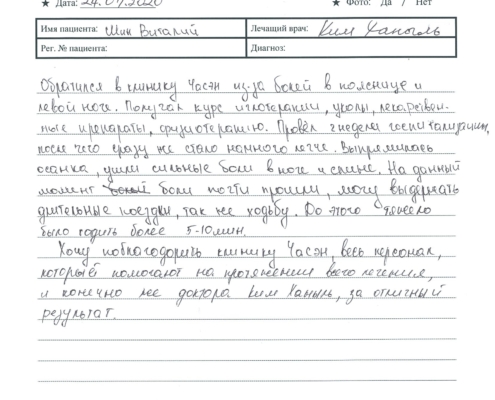 ★ Дата: 24.07.2020 ★ Фото: Да / Нет
Имя пациента: Шин Виталий Лечащий врач: Ким Ханыль
Рег. № пациента: Диагноз:
Обратился в клинику Часэн из-за болей в пояснице и
левой ноге. Получал курс иглотерапии, уколы, лекарствен-
ные препараты, физиотерапию. Провёл 2 недели госпитализации,
после чего сразу же стало намного легче. Выпрямилась
осанка, ушли сильные боли в ноге и спине. На данный
момент боли почти прошли, могу выдержать
длительные поездки, так же ходьбу. До этого тяжело
было ходить более 5-10 мин.
Хочу поблагодарить клинику Часэн, весь персонал,
который помогают на протяжении всего лечения,
и конечно же доктора Ким Ханыль, за отличный
результат.